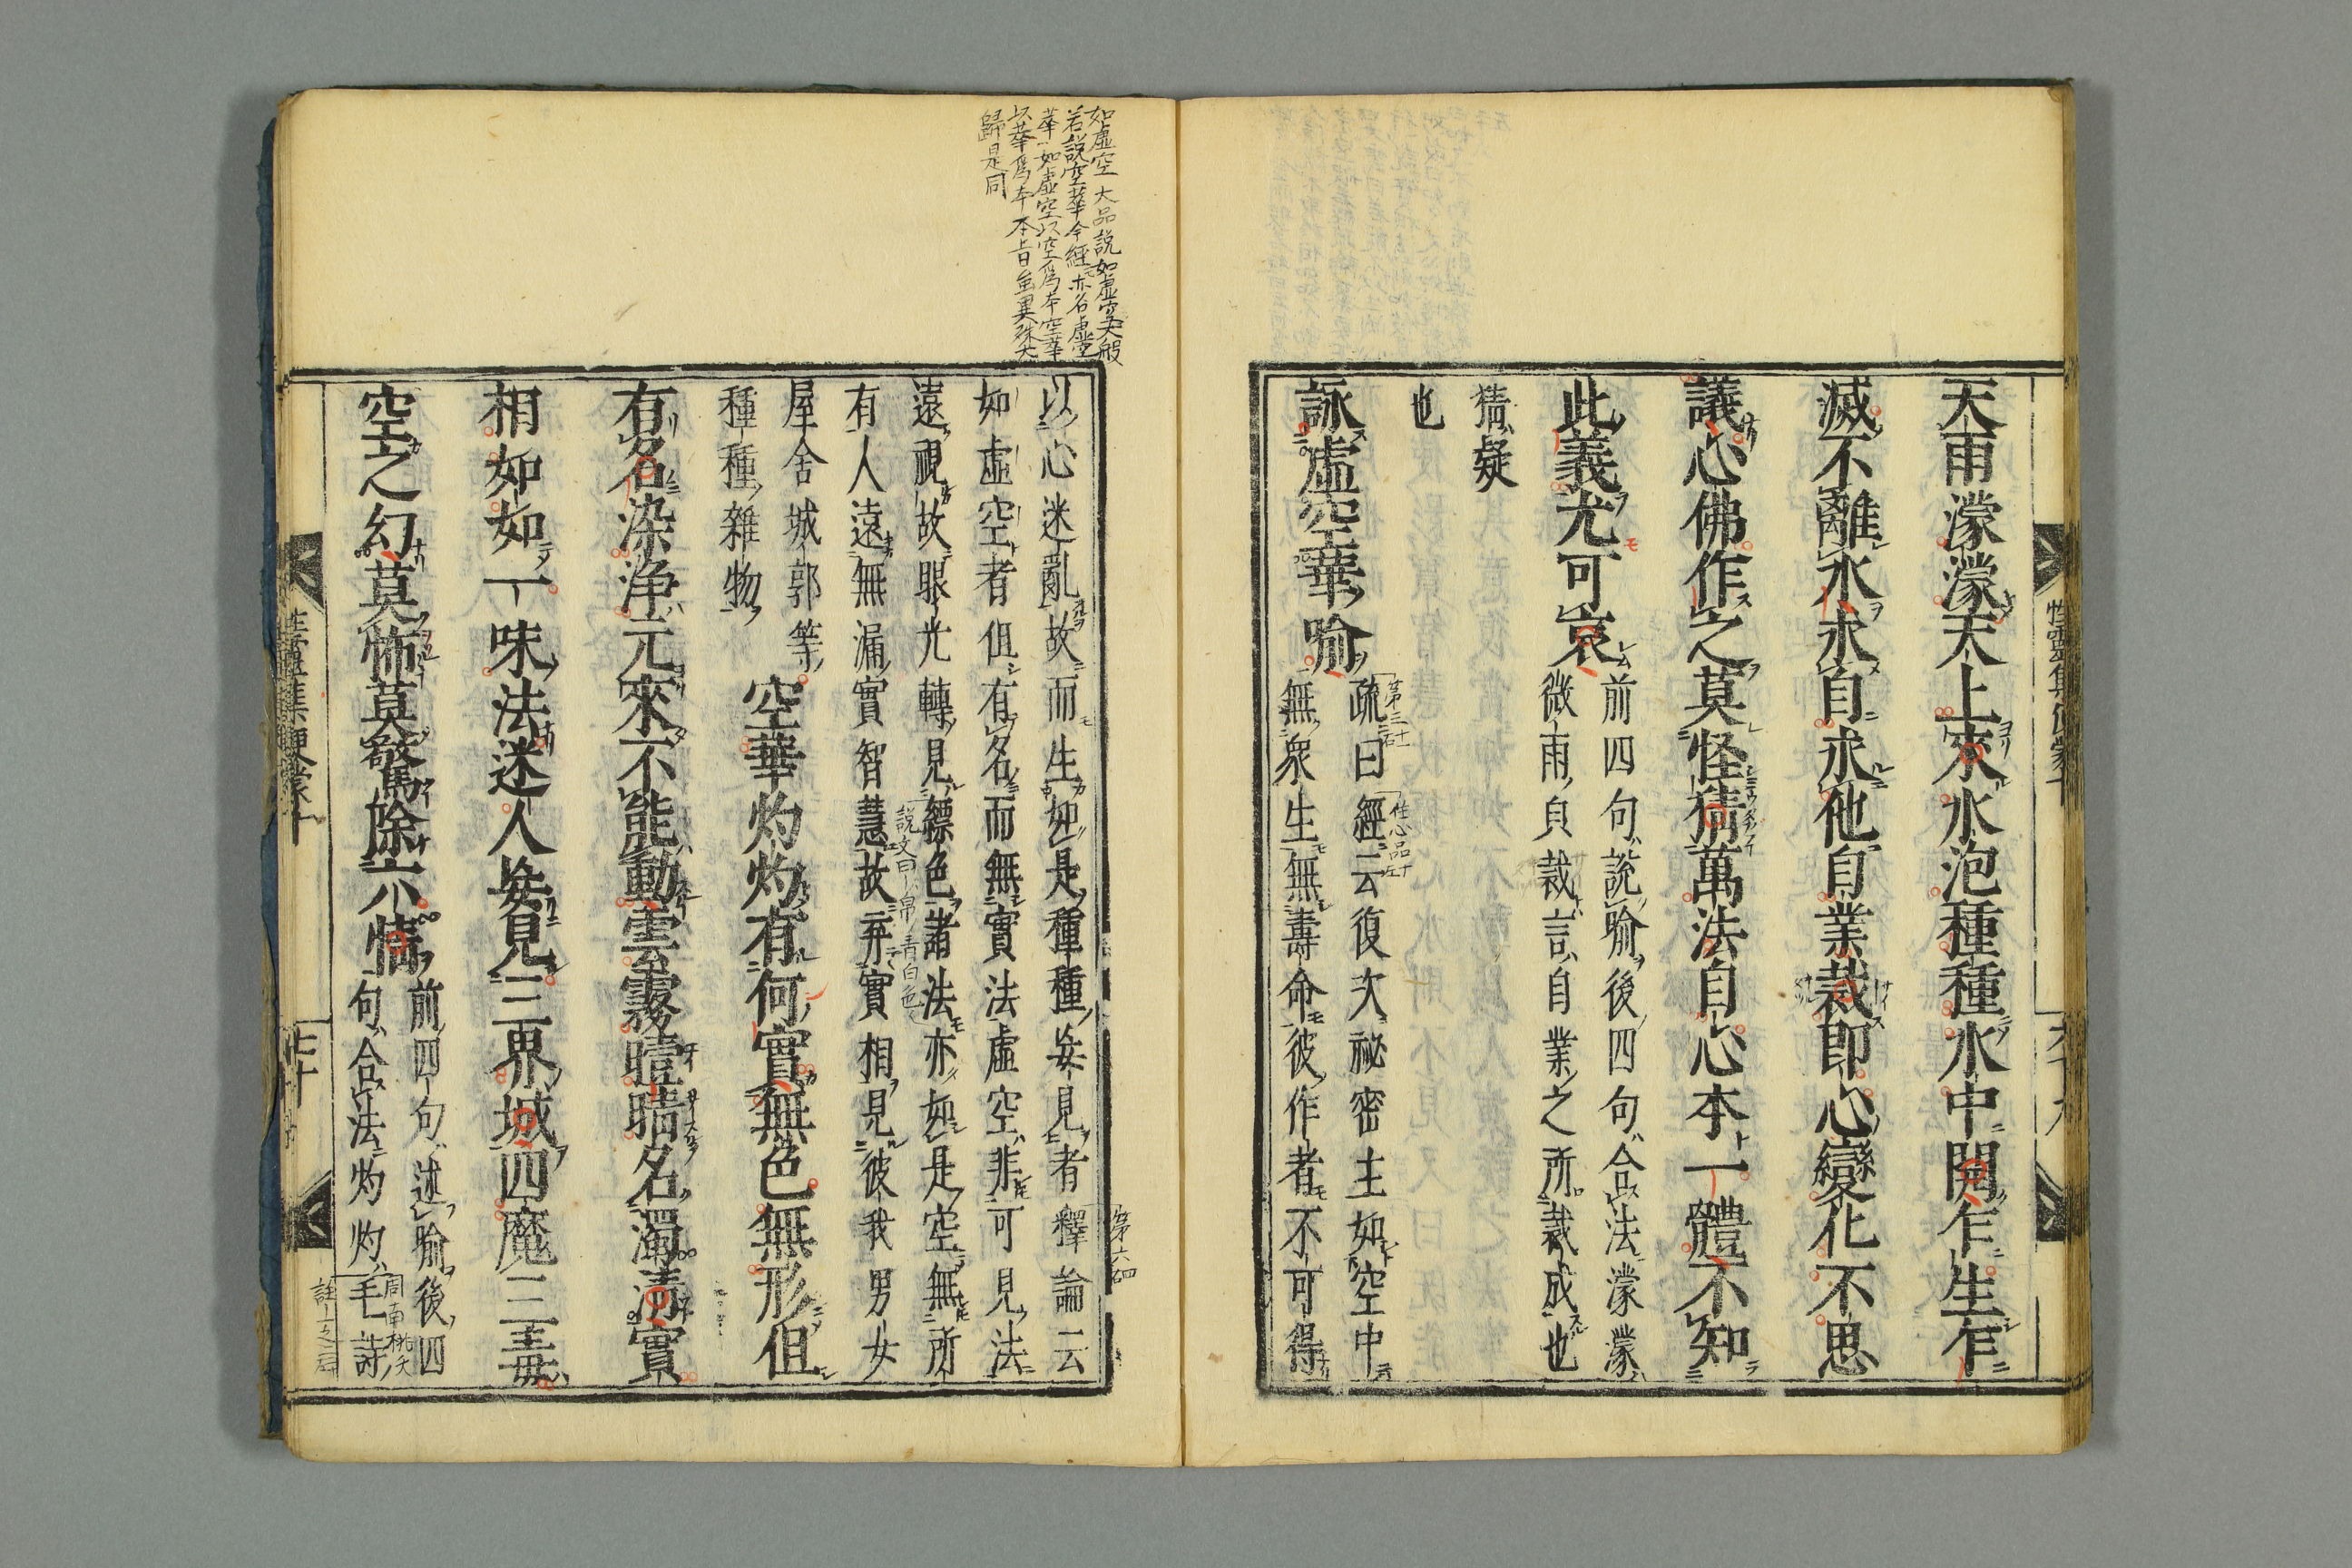 天雨濛濛天上來水泡種種水中開乍生乍
滅不離水求自求他自業裁即心變化不思
議心佛作之莫怪猜萬法自心本一體不知
此義尤可哀
前四句說喻後四句合法濛濛
微雨貞裁言自業之所裁成也
猜疑
也
詠虛空華喻
疏曰經云復次祕密主如空中
無衆生無壽命彼作者不可得
第三
住心品
性靈集便蒙十
六十九
如虛空大品說如虛空大般
若說空華今經亦名虛空
華如虛空以空爲本空華
以華爲本本旨無異殊大
歸是同
以心迷亂故而生如是種種妄見者釋論云
如虛空者但有名而無實法虛空非可見法
遠視故眼光轉見縹色諸法亦如是空無所
有人遠無漏實智慧故弃實相見彼我男女
屋舍城郭等
種種雜物
空華灼灼有何實無色無形但
有名染淨元來不能動雲霧曀晴名濁淸實
相如如一味法迷人妄見三界城四魔三毒
空之幻莫怖莫驚除六情
前四句述喻後四
句合法灼灼毛詩
第六
說文曰帛青白色
周南桃夭
註之
性靈集便蒙十
七十